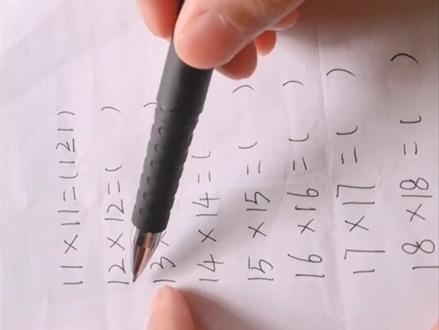 11×11=(121)
12×12=( )
13× )
14×14=( )
15×15=( )
16×16=( )
17×17=( )
18×18=( )